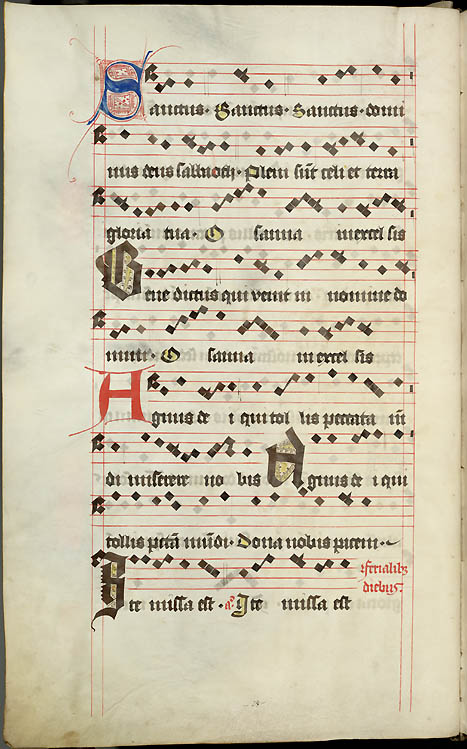 Sanctus · Sanctus · Sanctus · domi
nus deus sabaoth · Pleni sūt celi et terra
gloria tua · O sanna in excel sis
Bene dictus qui venit in nomine do
mini · O sanna in excel sis
Agnus de i qui tol lis peccata mū
di miserere no bis Agnus de i qui
tollis pctā mūdi · Dona nobis pacem ·
Ite missa est · Ite missa est